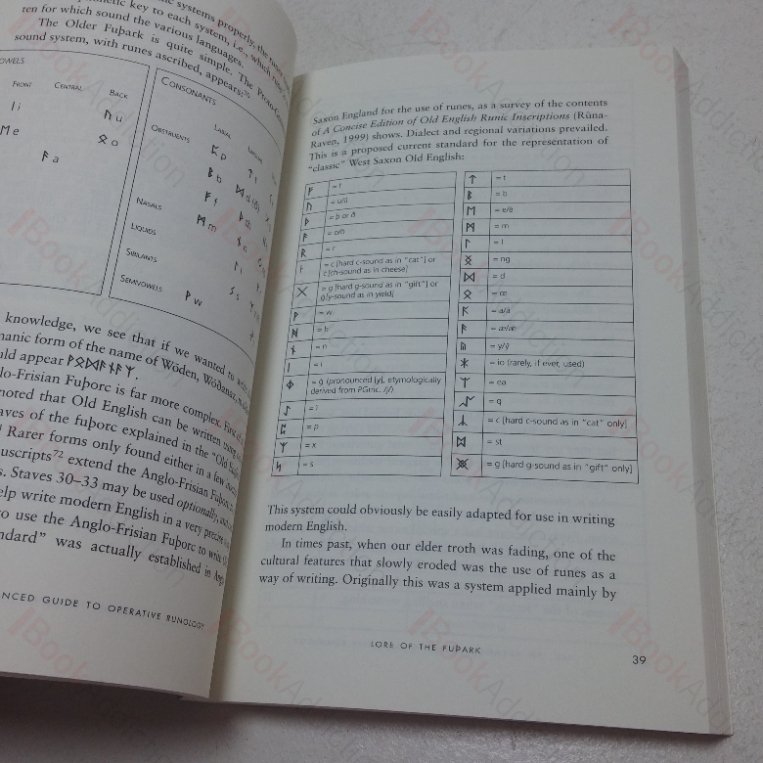 systems properly, the
netic key to each system, i.e., which
ten for which sound the various languages.
The Older Fuþark is quite simple. The
sound system, with runes ascribed, appears:
OWELS
FRONT CENTRAL BACK
ᛁ i ᚢ u
ᛖ e ᛟ o
ᚨ a
CONSONANTS
LABIAL
OBSTRUENTS
ᛈ p ᛏ t
ᛒ b ᛞ d
ᚠ f ᚦ
NASALS ᛗ m
LIQUIDS
SIBILANTS ᛊ s
SEMIVOWELS ᚹ w
knowledge, we see that if we wanted to
manic form of the name of Wōden,
ld appear ᚹᛟᛞᚨᚾᚨᛉ.
lo-Frisian Fuþorc is far more complex. First
noted that Old English can be written using
aves of the fuþorc explained in the "Old
Rarer forms only found either in a few
uscripts⁷² extend the Anglo-Frisian
s. Staves 30–33 may be used optionally,
elp write modern English in a very precise
to use the Anglo-Frisian Fuþorc to write
ndard" was actually established in
NCED GUIDE TO OPERATIVE RUNOLOGY
Saxon England for the use of runes, as a survey of the contents
of A Concise Edition of Old English Runic Inscriptions (Rûna-
Raven, 1999) shows. Dialect and regional variations prevailed.
This is a proposed current standard for the representation of
"classic" West Saxon Old English:
ᚠ = f
ᚢ = u/ū
ᚦ = þ or ð
ᚩ = o/ō
ᚱ = r
ᚳ = c [hard c-sound as in "cat"] or
ċ [ch-sound as in cheese]
ᚷ = g [hard g-sound as in "gift"] or
ġ [y-sound as in yield]
ᚹ = w
ᚻ = h
ᚾ = n
ᛁ = i
ᛄ = ġ (pronounced [y], etymologically
derived from PGmc. /j/)
ᛇ = ī
ᛈ = p
ᛉ = x
ᛋ = s
ᛏ = t
ᛒ = b
ᛖ = e/ē
ᛗ = m
ᛚ = l
ᛝ = ng
ᛞ = d
ᛟ = œ
ᚪ = a/ā
ᚫ = æ/ǣ
ᚣ = y/ȳ
ᛡ = io (rarely, if ever, used)
ᛠ = ea
ᛢ = q
ᛣ = c [hard c-sound as in "cat" only]
ᛥ = st
ᚸ = g [hard g-sound as in "gift" only]
This system could obviously be easily adapted for use in writing
modern English.
In times past, when our elder troth was fading, one of the
cultural features that slowly eroded was the use of runes as a
way of writing. Originally this was a system applied mainly by
LORE OF THE FUÞARK
39
BookAddiction